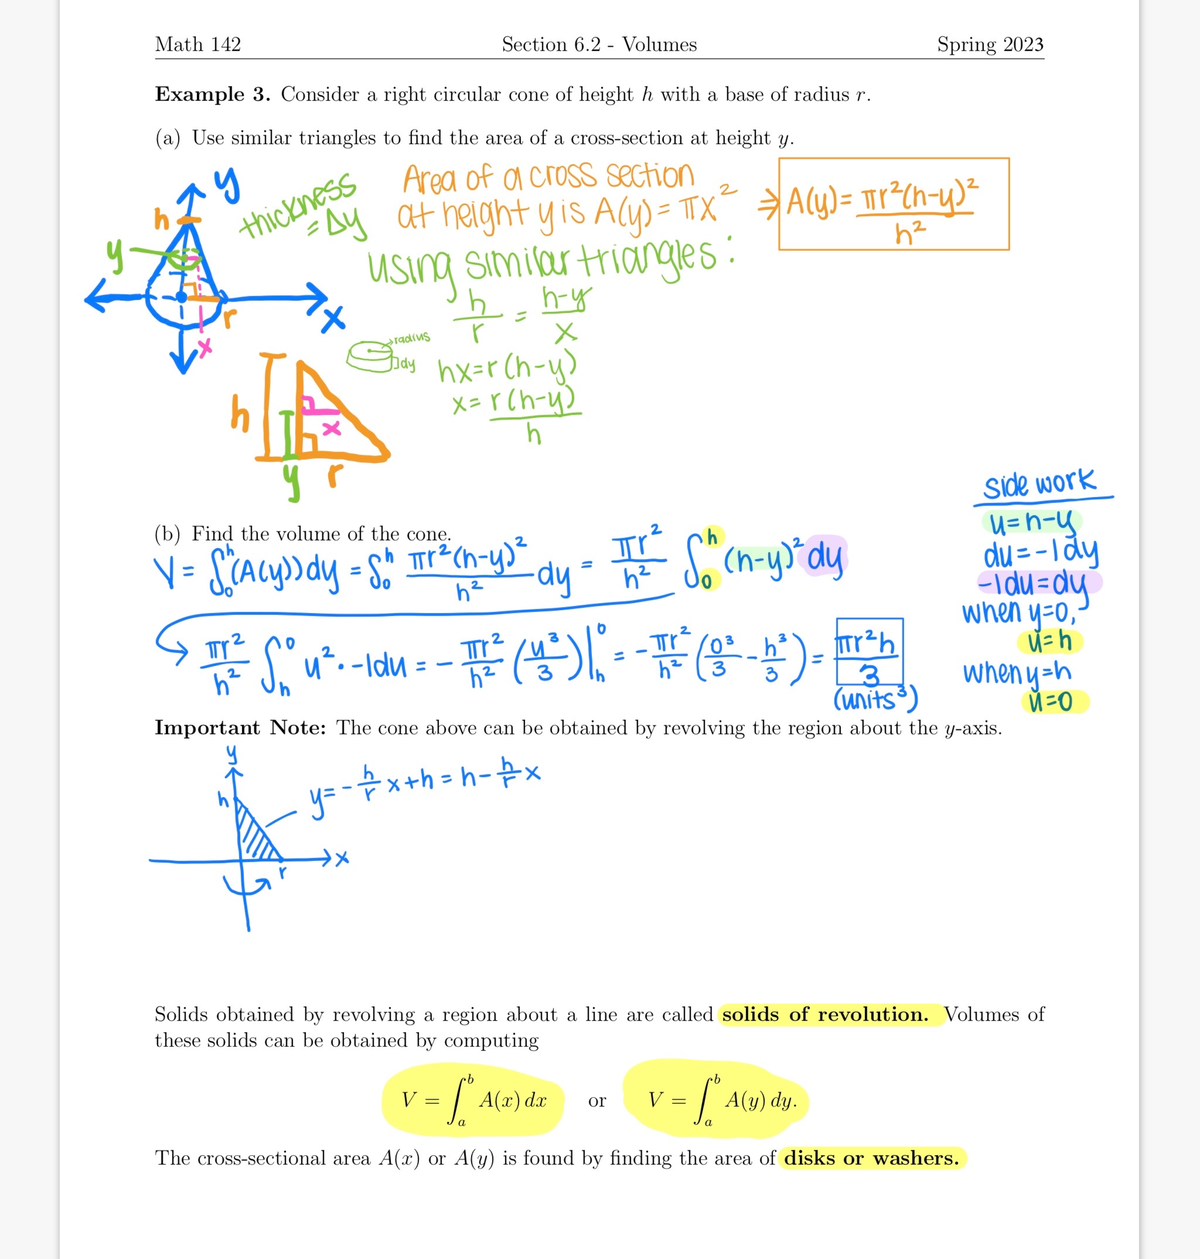 Math 142 Section 6.2 - Volumes Spring 2023
Example 3. Consider a right circular cone of height h with a base of radius r.
(a) Use similar triangles to find the area of a cross-section at height y.
y
h
y
r
x
x
thickness
= Δy
Area of a cross section
at height y is A(y) = πx²
⇒ A(y) = πr²(h-y)²/h²
using similar triangles:
h/r = (h-y)/x
hx = r(h-y)
x = r(h-y)/h
radius
dy
h
x
y r
(b) Find the volume of the cone.
V = ∫₀ʰ(A(y))dy = ∫₀ʰ πr²(h-y)²/h² dy = πr²/h² ∫₀ʰ (h-y)² dy
↪ πr²/h² ∫ₕ⁰ u² · -1du = - πr²/h² (u³/3)|ₕ⁰ = - πr²/h² (0³/3 - h³/3) = πr²h/3
(units³)
side work
u=h-y
du=-1dy
-1du=dy
when y=0,
u=h
when y=h
u=0
Important Note: The cone above can be obtained by revolving the region about the y-axis.
y
h
y = - h/r x + h = h - h/r x
x
r
Solids obtained by revolving a region about a line are called solids of revolution. Volumes of
these solids can be obtained by computing
V = ∫ₐᵇ A(x) dx or V = ∫ₐᵇ A(y) dy.
The cross-sectional area A(x) or A(y) is found by finding the area of disks or washers.